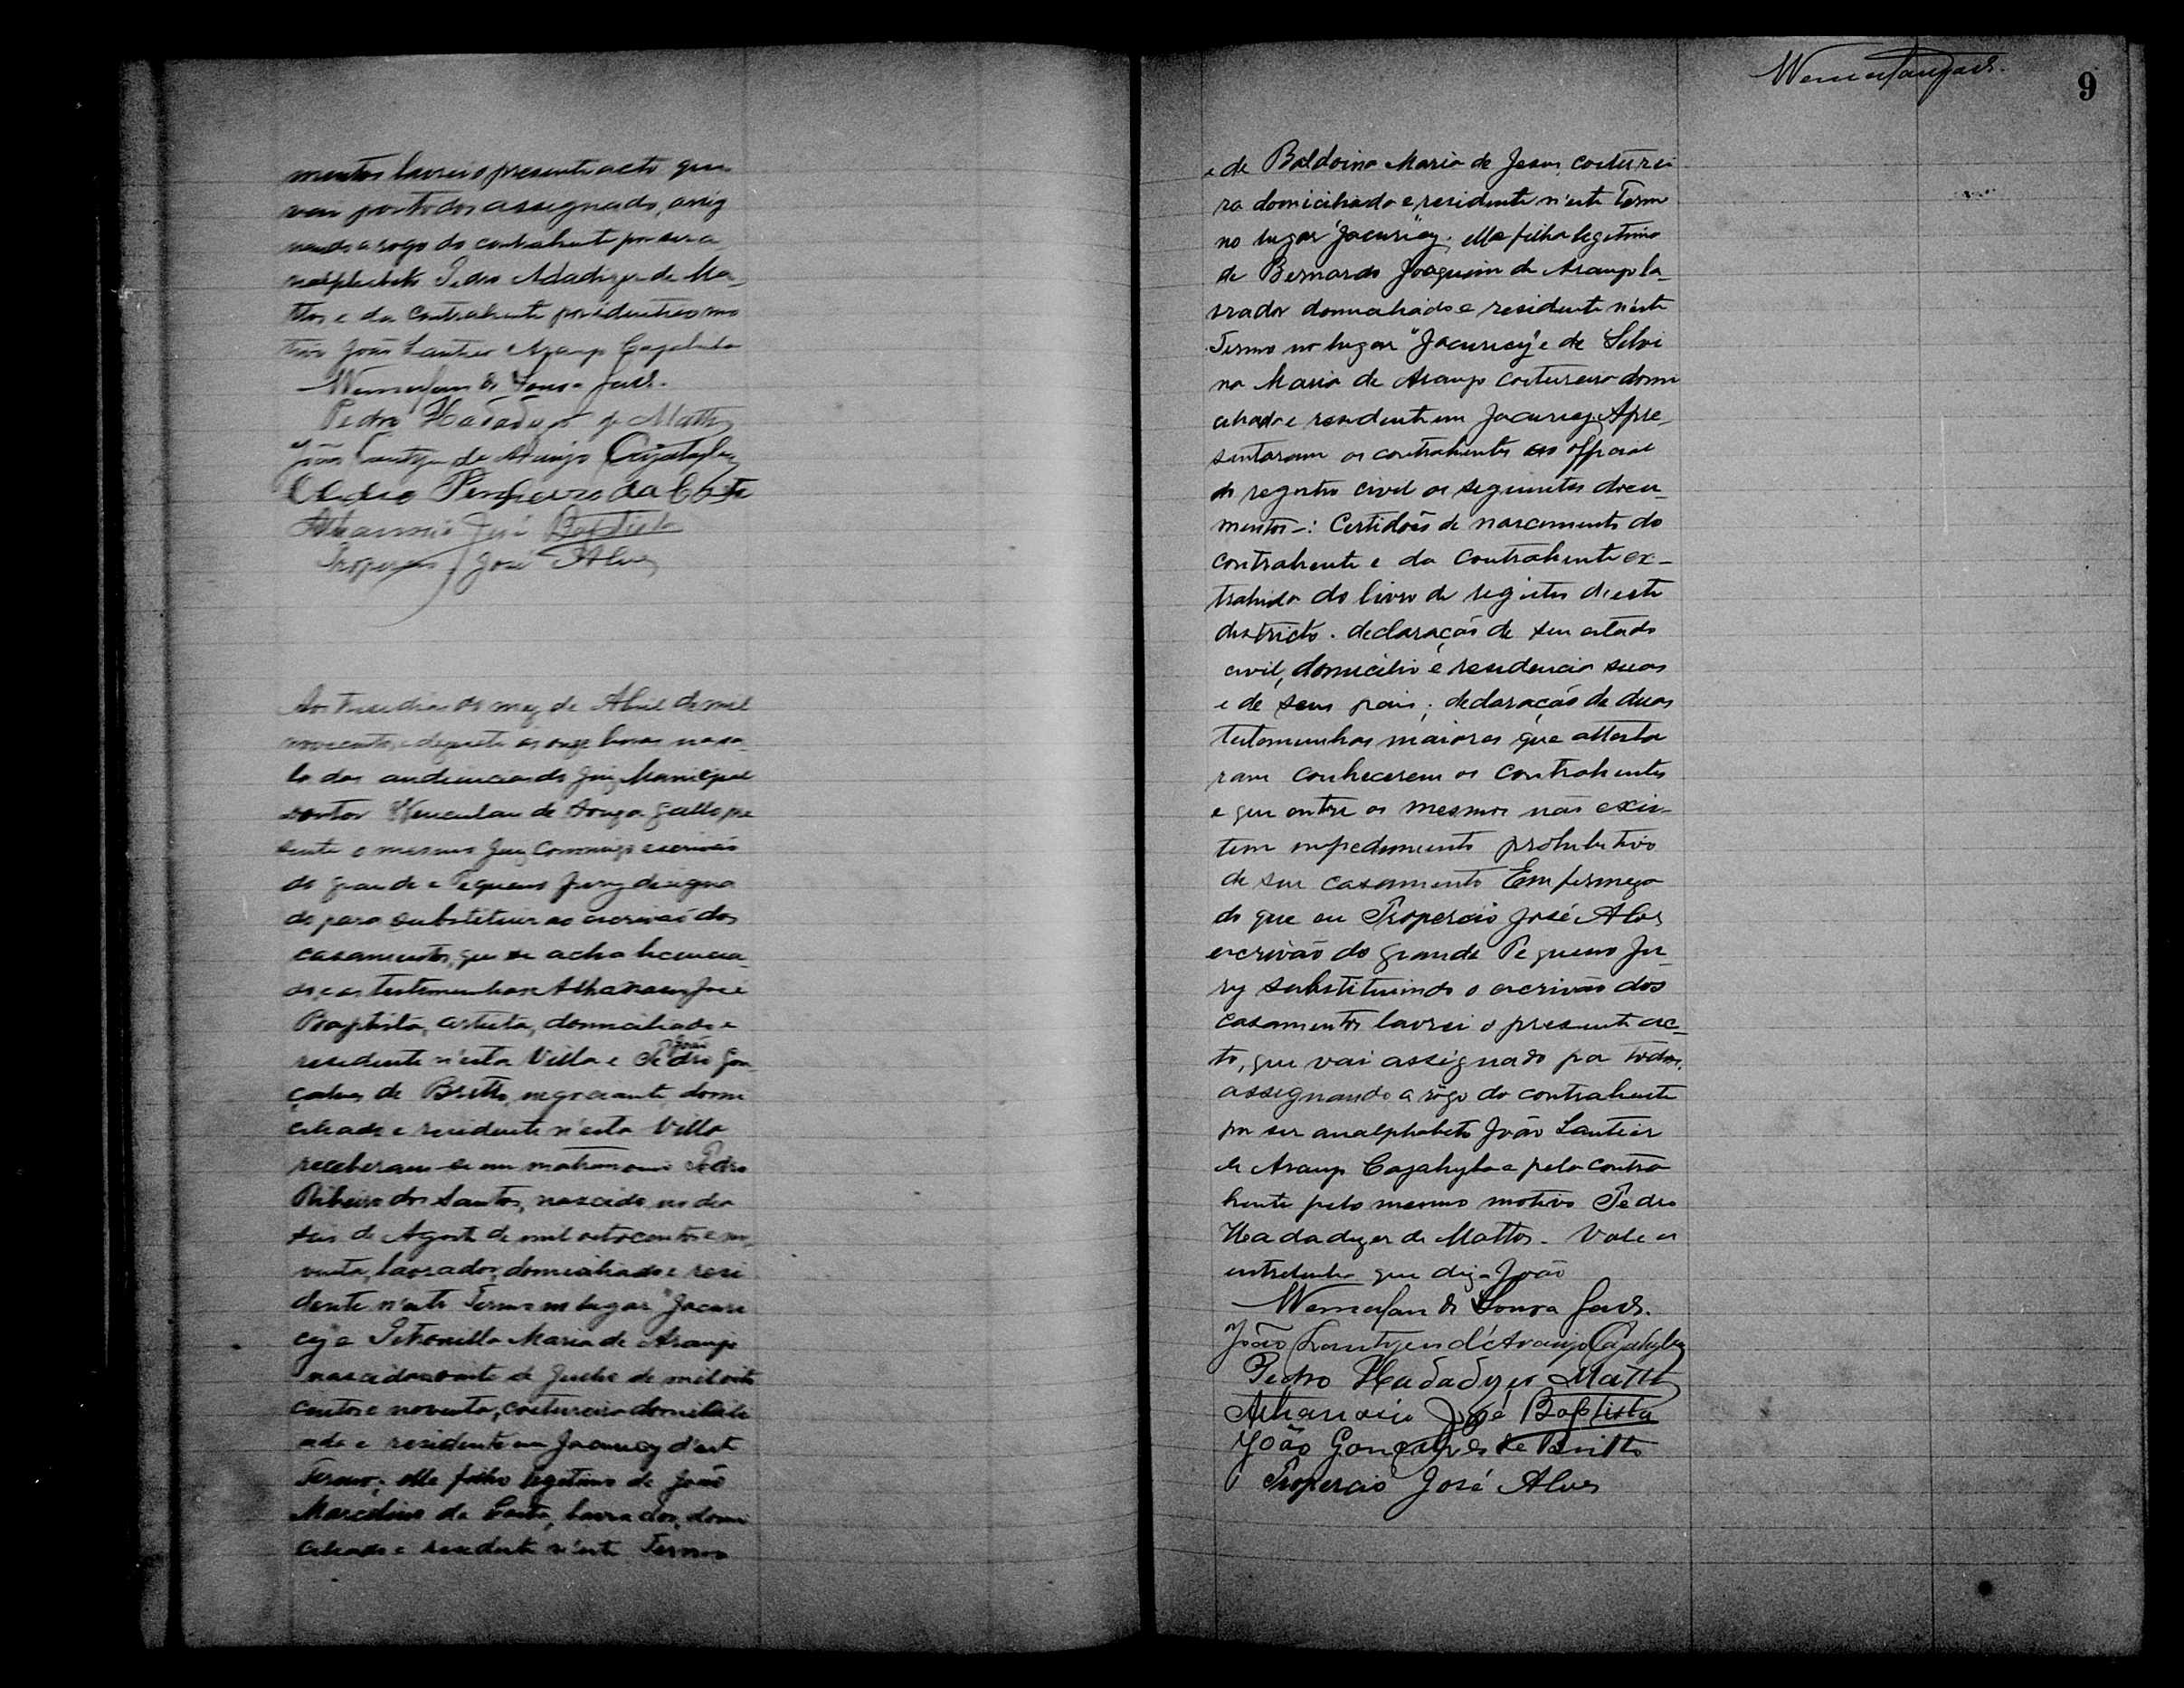 mentos lavrei o presente acto que
vai por todos assegnado, assig
nando a rogo do contrahente por ser a
nalphabeto Pedro Hadadezer de Ma_
ttos e da contrahente por identico mo
tivo João Lantier Araujo Cajahiba
Wenceslau de Souza
Pedro Hadadezer de Mattos
João de Araujo Cajahyba
Pinheiro da Costa
Athanasio José Baptista
Propercio José Alves
Aos trese dias do mez de Abril de mil
novecentos e dezesete as onze horas na sa_
la das audiencias do Juiz Municipal
doutor Wenceslau de Souza Gallo pre
sente o mesmo Juiz Commigo escrivão
do grande e Pequeno Jury designa
do para substituir ao escrivão dos
casamentos, que se acha licencia_
do, e as testemunhas Athanasio José
Baptista, artista, domiciliado e
residente n'esta Villa e Pedro João Gon
çalves de Britto, negociante domi
ciliado e residente n'esta Villa
receberam-se em matrimonio Pedro
Ribeiro dos Santos, nascido no dia
seis de Agosto de mil oitocentos e no_
venta, lavrador, domiciliado e resi
dente n'este Termo no lugar "Jacuri
cy" e Petronilla Maria de Araujo
nascida a vinte de Junho de mil oito
centos e noventa, costureira domicili
ada e residente em Jacuricy d'este
Termo; elle filho legitimo de João
Marcelino da Costa, lavrador, domi
ciliado e residente n'este Termo
9
e de Baldoina Maria de Jesus, costurei
ra domiciliada e residente n'este Termo
no lugar "Jacuricy". ella filha legitima
de Bernardo Joaquim de Araujo la_
vrador domiciliado e residente n'este
Termo no lugar "Jacuricy" e de Silvi
na Maria de Araujo costureira domi
ciliada e residente em Jacuricy. Apre_
sentaram os contrahentes ao official
do registro civil os seguintes docu_
mentos -: Certidões de nascimento do
contrahente e da contrahente ex_
trahida do livro de registos d'este
districto. declaração de seu estado
civil, domicilio e residencia suas
e de seus pais; declaração de duas
testemunhas maiores que attesta
ram conhecerem os contrahentes
e que entre os mesmos não exis_
tem impedimento prohibitivo
de seu casamento Em firmeza
do que eu Propercio José Alves
escrivão do grande Pequeno Ju_
ry substituindo o escrivão dos
casamentos lavrei o presente ac_
to, que vai assignado por todos,
assegnando a rôgo do contrahente
por ser analphabeto João Lantier
de Araujo Cajahyba e pela contra
hente pelo mesmo motivo Pedro
Hadadezer de Mattos. Vale a
entrelinha que diz - João
Wenceslau de Souza
João Lantyer d'Araujo Cajahyba
Pedro Hadadezer Mattos
Athanasio José Baptista
João Gonçalves de Britto
Propercio José Alves